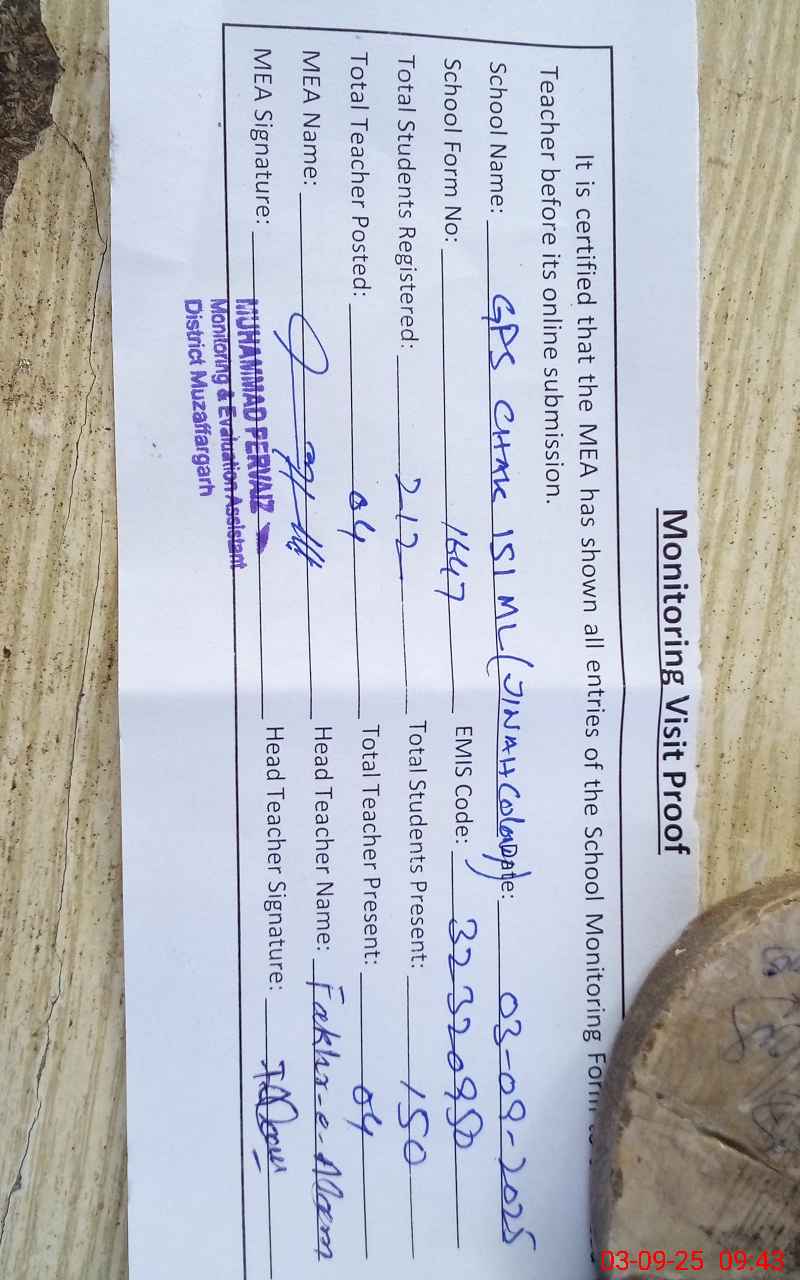 Monitoring Visit Proof
It is certified that the MEA has shown all entries of the School Monitoring Form
Teacher before its online submission.
School Name: GPS CHAK 151 ML (JINAH Colony) Date: 03-09-2025
School Form No: 1647 EMIS Code: 32320950
Total Students Registered: 212 Total Students Present: 150
Total Teacher Posted: 04 Total Teacher Present: 04
MEA Name: Head Teacher Name: Fakhr-e-Alam
MEA Signature: Head Teacher Signature:
MUHAMMAD PERVAIZ
Monitoring & Evaluation Assistant
District Muzaffargarh
03-09-25 09:43